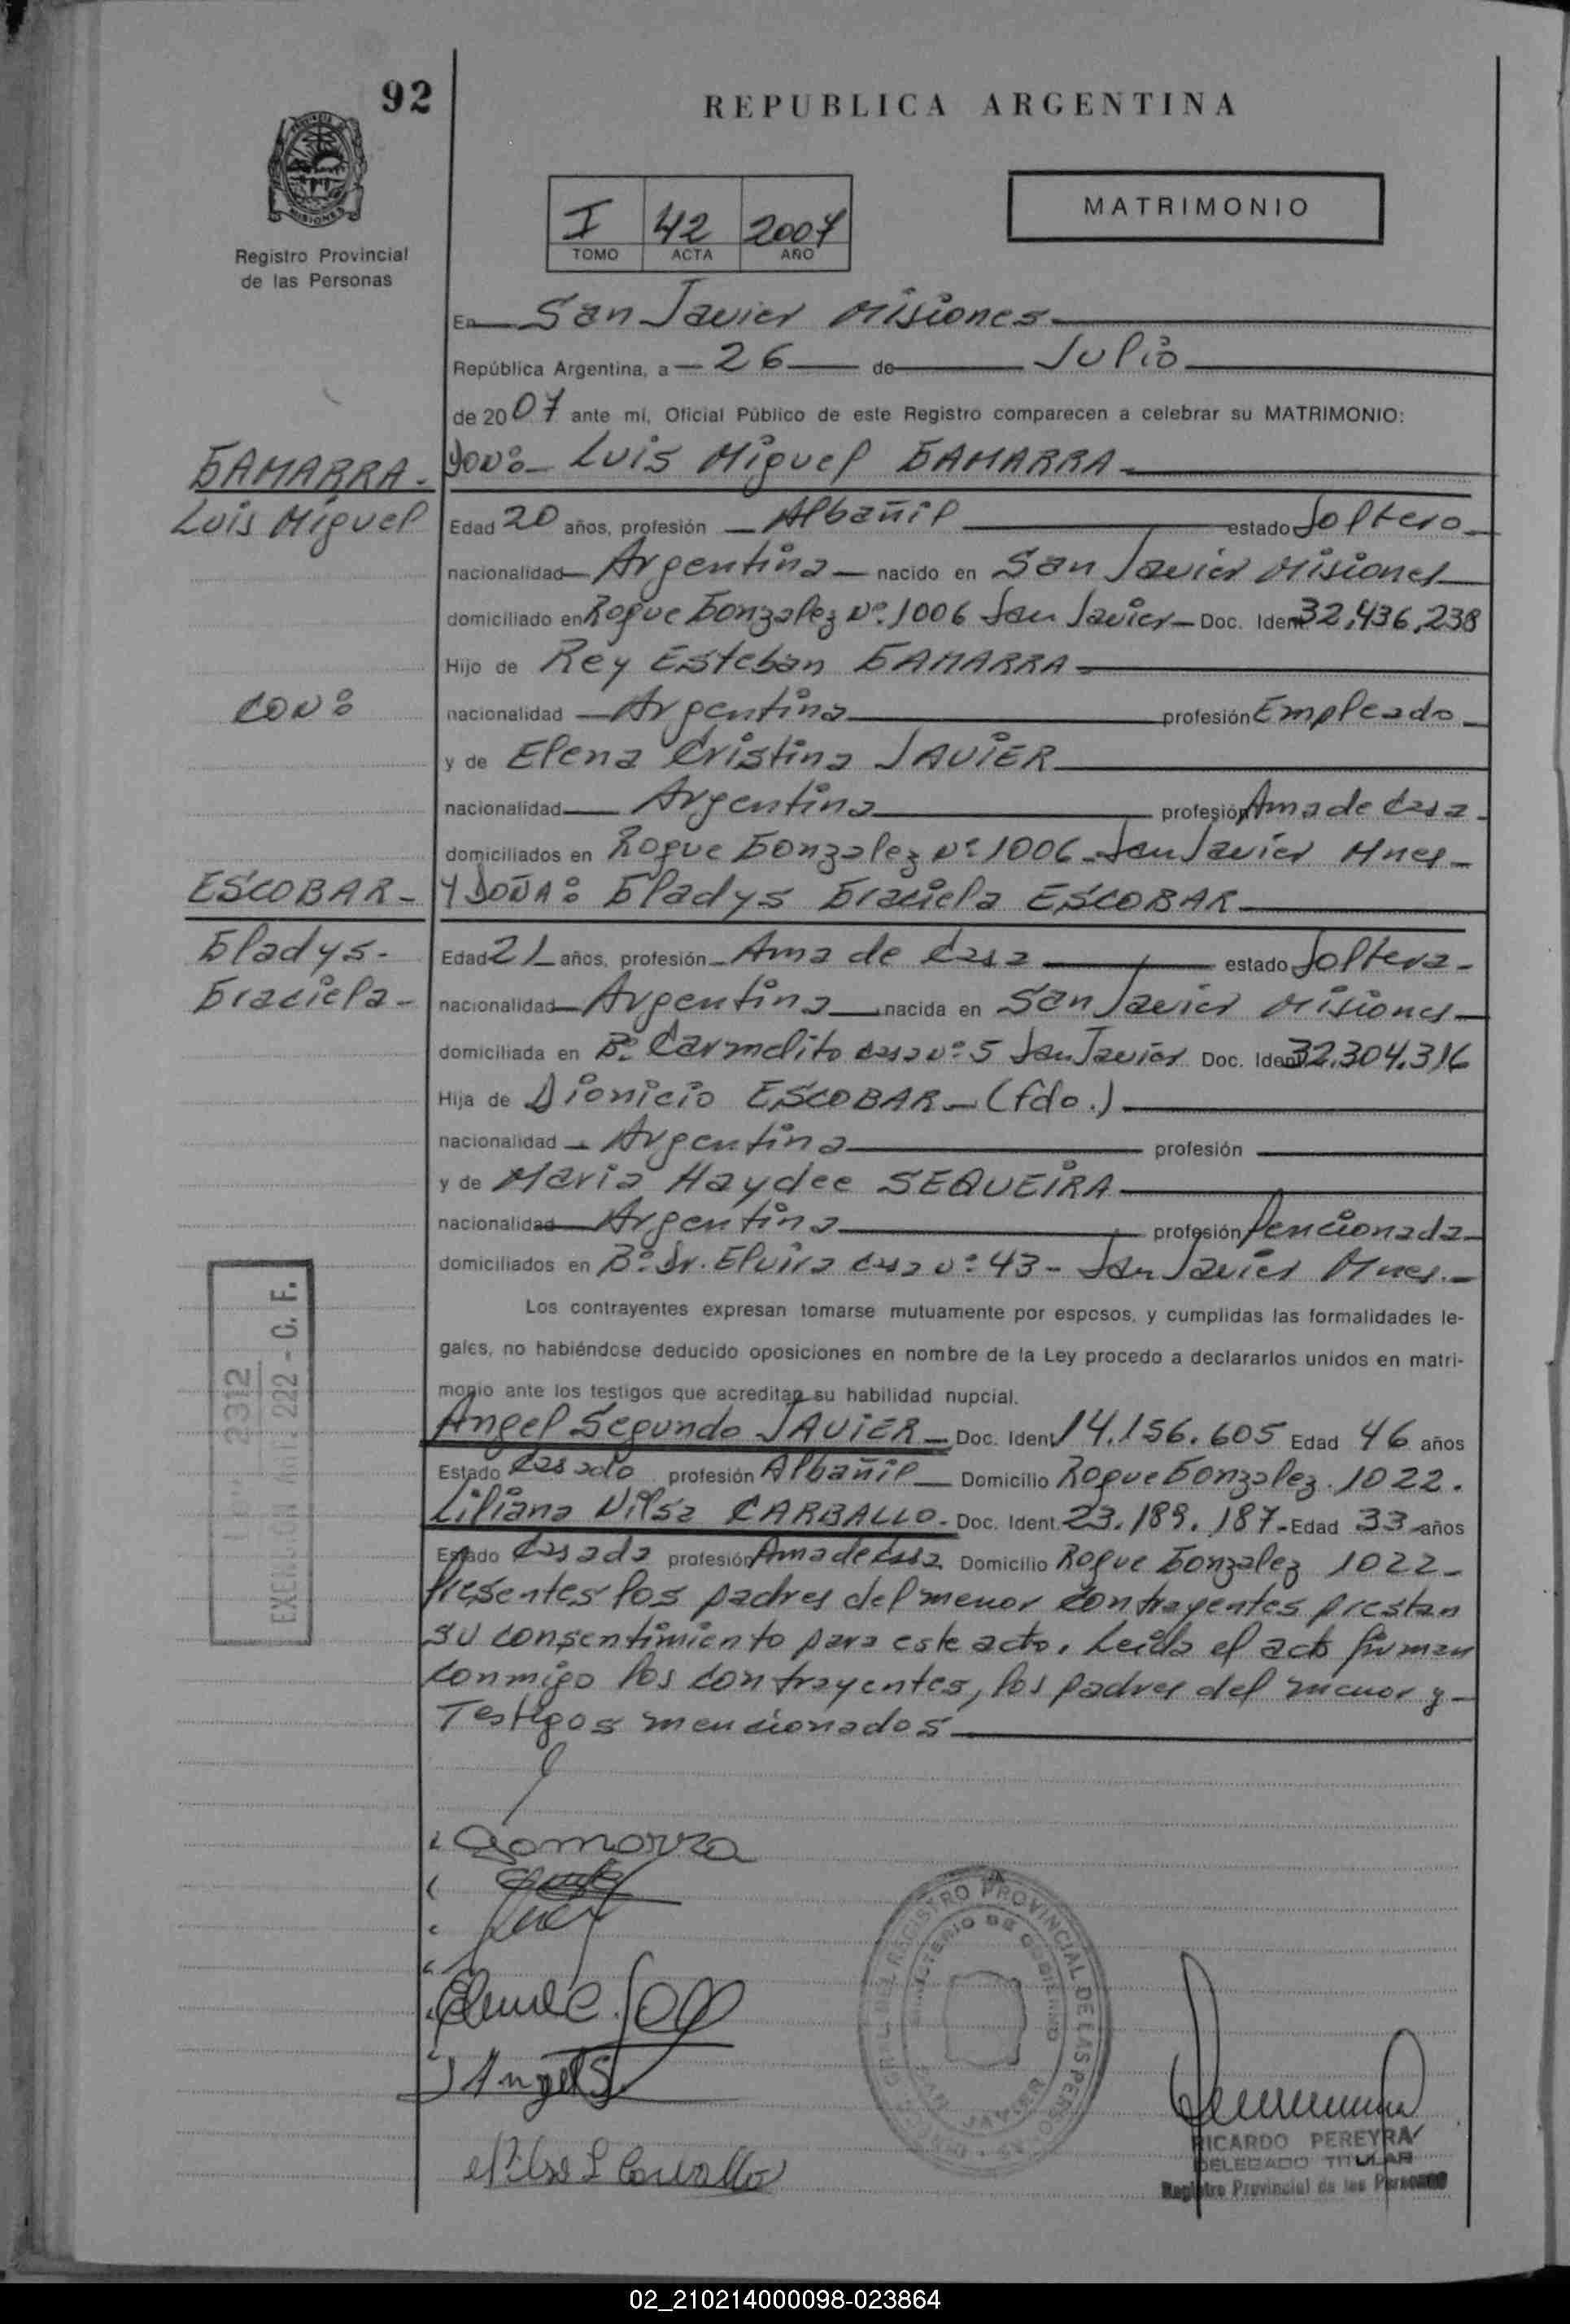 92
REPUBLICA ARGENTINA
PROVINCIA DE
MISIONES
Registro Provincial
de las Personas
I 42 2007
TOMO ACTA AÑO
MATRIMONIO
En San Javier Misiones
República Argentina, a 26 de Julio
de 2007 ante mí, Oficial Público de este Registro comparecen a celebrar su MATRIMONIO:
GAMARRA - DON: Luis Miguel GAMARRA
Luis Miguel Edad 20 años, profesión Albañil estado Soltero
nacionalidad Argentina nacido en San Javier Misiones
domiciliado en Roque Gonzalez Nº 1006 San Javier Doc. Ident. 32.436.238
Hijo de Rey Esteban GAMARRA
CON: nacionalidad Argentina profesión Empleado
y de Elena Cristina JAVIER
nacionalidad Argentina profesión Ama de Casa
domiciliados en Roque Gonzalez Nº 1006 - San Javier Mnes
ESCOBAR - Y DOÑA: Gladys Graciela ESCOBAR
Gladys - Edad 21 años, profesión Ama de Casa estado Soltera
Graciela - nacionalidad Argentina nacida en San Javier Misiones
domiciliada en Bº Carmelito casa nº 5 San Javier Doc. Ident. 32.304.316
Hija de Dionicio ESCOBAR - (fdo.)
nacionalidad Argentina profesión
y de Maria Haydee SEQUEIRA
nacionalidad Argentina profesión Pencionada
domiciliados en Bº Dr. Elvira casa nº 43 - San Javier Mnes.
Los contrayentes expresan tomarse mutuamente por esposos, y cumplidas las formalidades le-
gales, no habiéndose deducido oposiciones en nombre de la Ley procedo a declararlos unidos en matri-
monio ante los testigos que acreditan su habilidad nupcial.
Angel Segundo JAVIER - Doc. Ident. 14.156.605 Edad 46 años
Estado Casado profesión Albañil Domicilio Roque Gonzalez 1022.
Liliana Nilsa CARBALLO - Doc. Ident. 23.189.187 - Edad 33 años
Estado Casada profesión Ama de Casa Domicilio Roque Gonzalez 1022 -
Presentes los padres del menor contrayentes prestan
su consentimiento para este acto. Leida el acto firman
conmigo los contrayentes, los padres del menor y
Testigos mencionados
2312
EXENCION Art. 222 - C. F.
Gamarra
Angel S.
Nilsa L Carvallo
REGISTRO PROVINCIAL DE LAS PERSONAS
MINISTERIO DE GOBIERNO
SAN JAVIER
RICARDO PEREYRA
DELEGADO TITULAR
Registro Provincial de las Personas
02_210214000098-023864